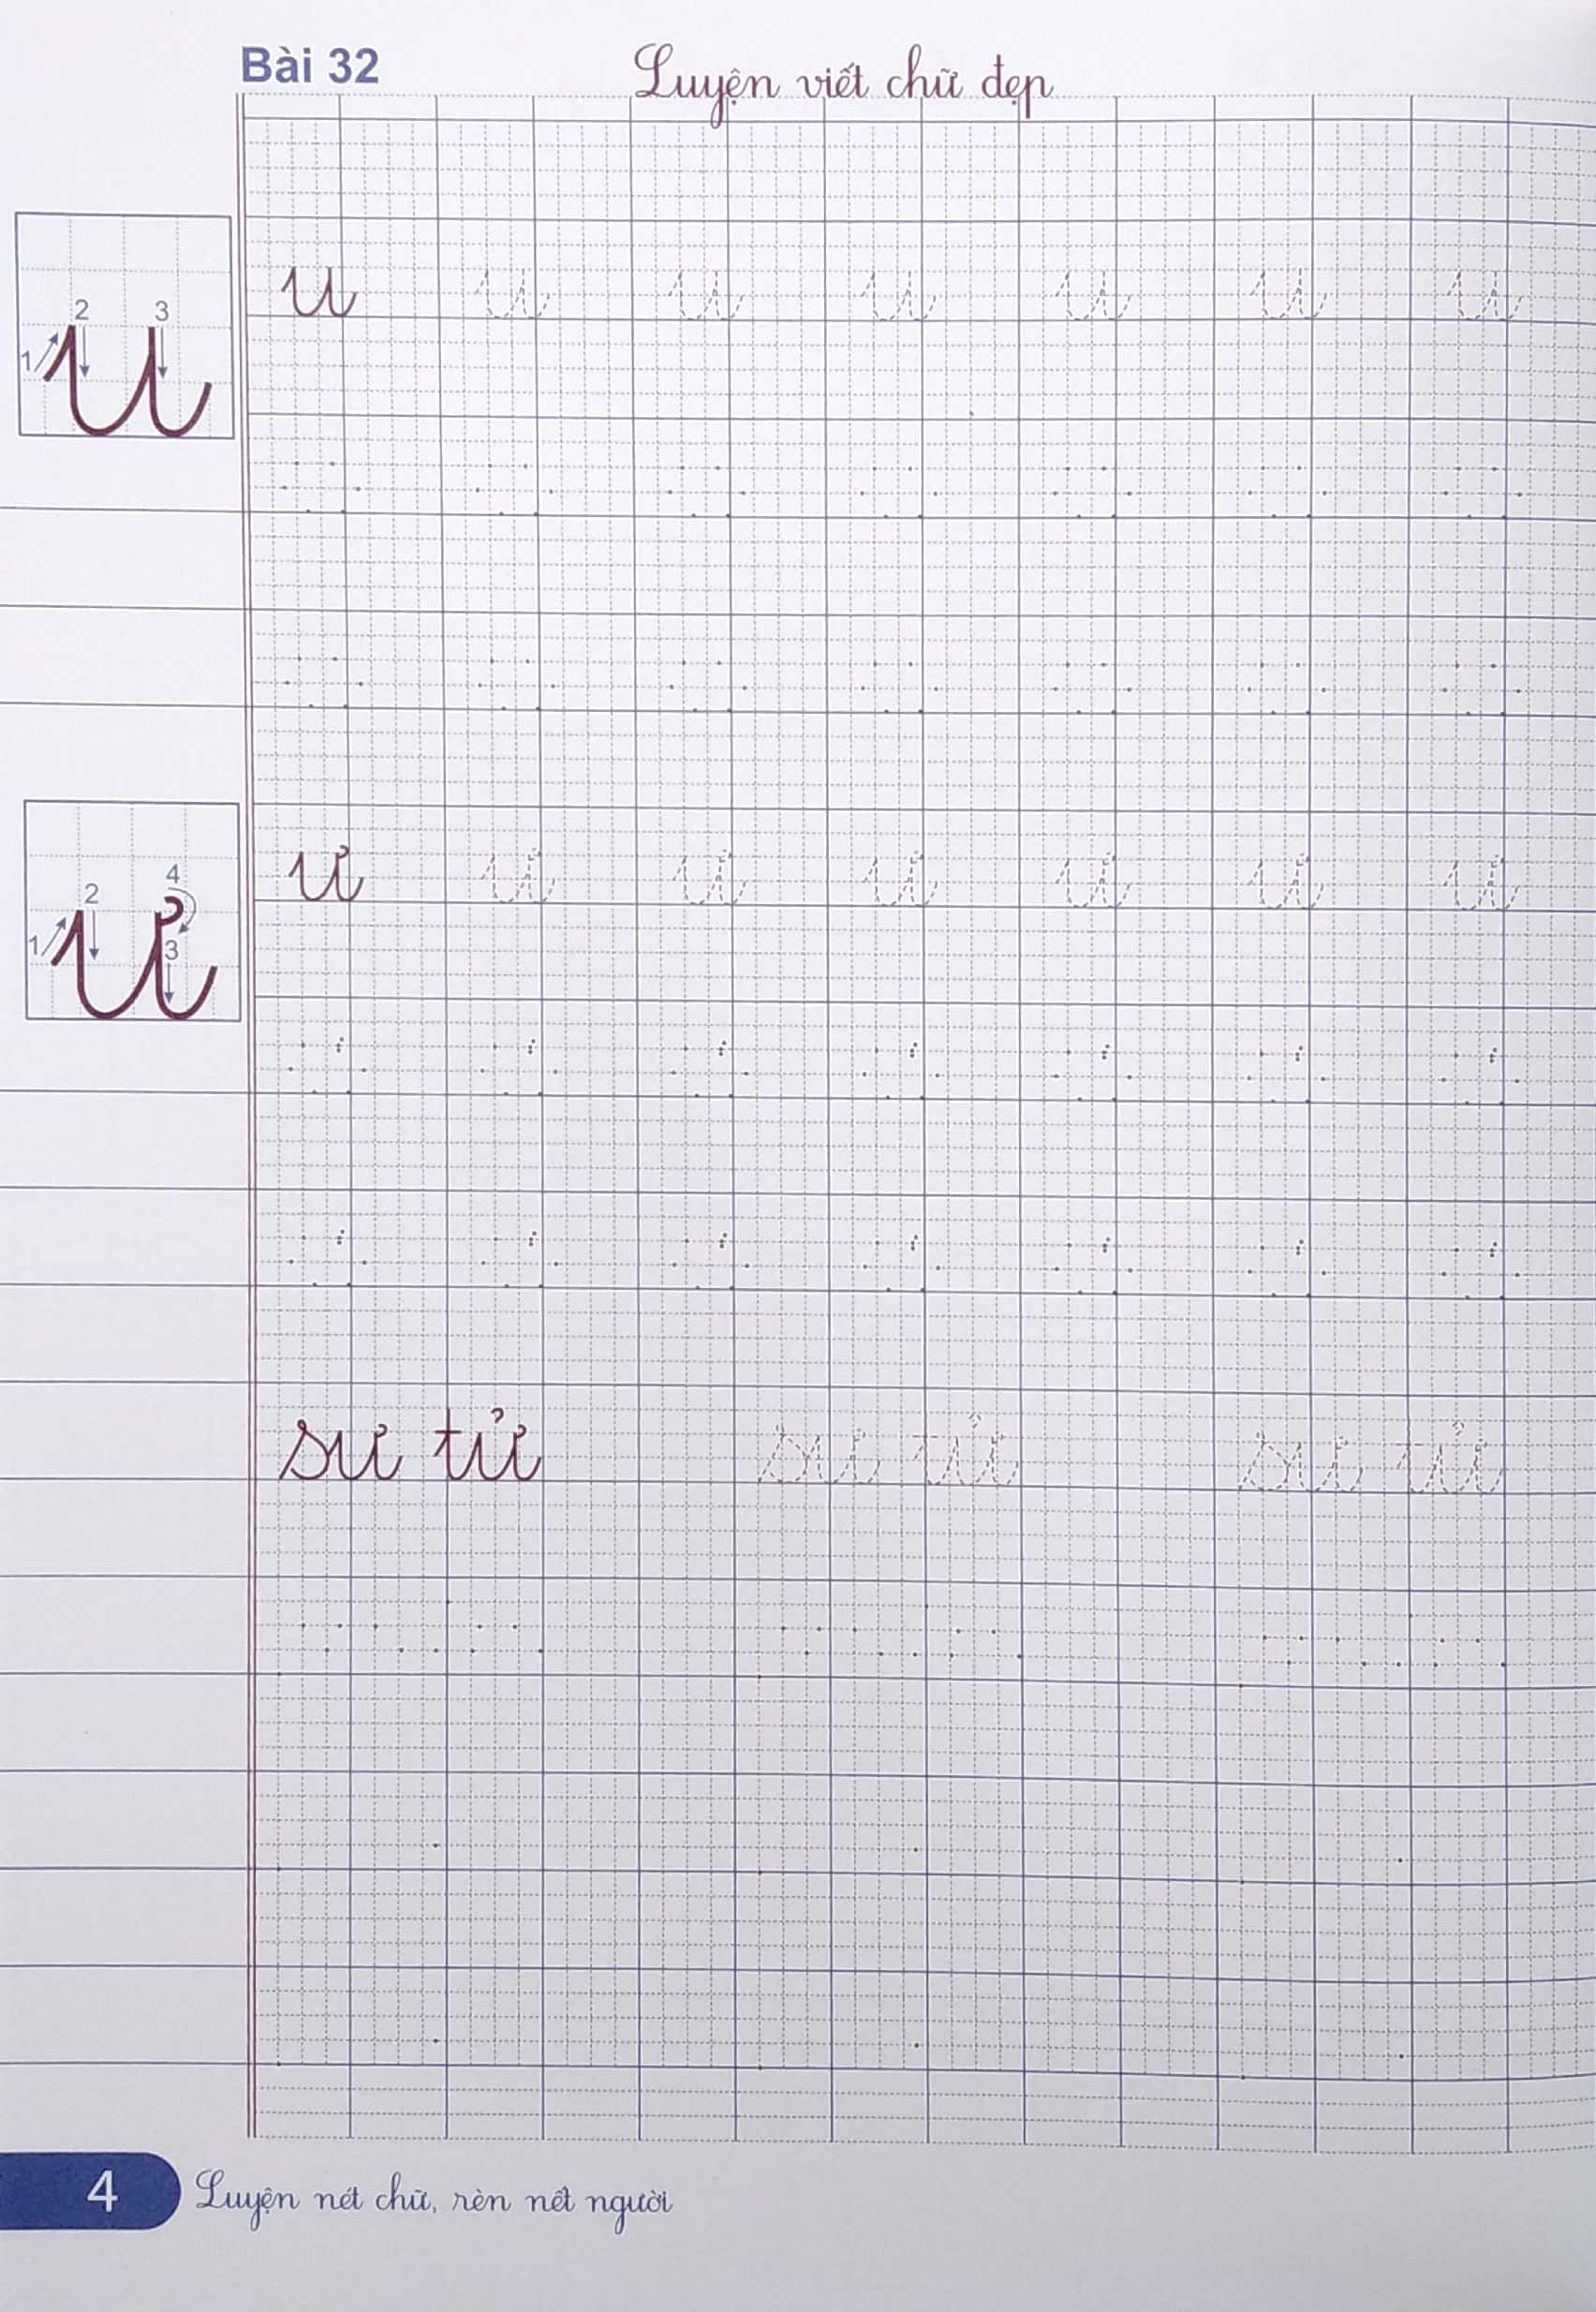 Bài 32
Luyện viết chữ đẹp
2 3
1
u u u u u u u
4
2
1 3
ư ư ư ư ư ư ư
sư tử sư tử sư tử
4 Luyện nét chữ, rèn nết người